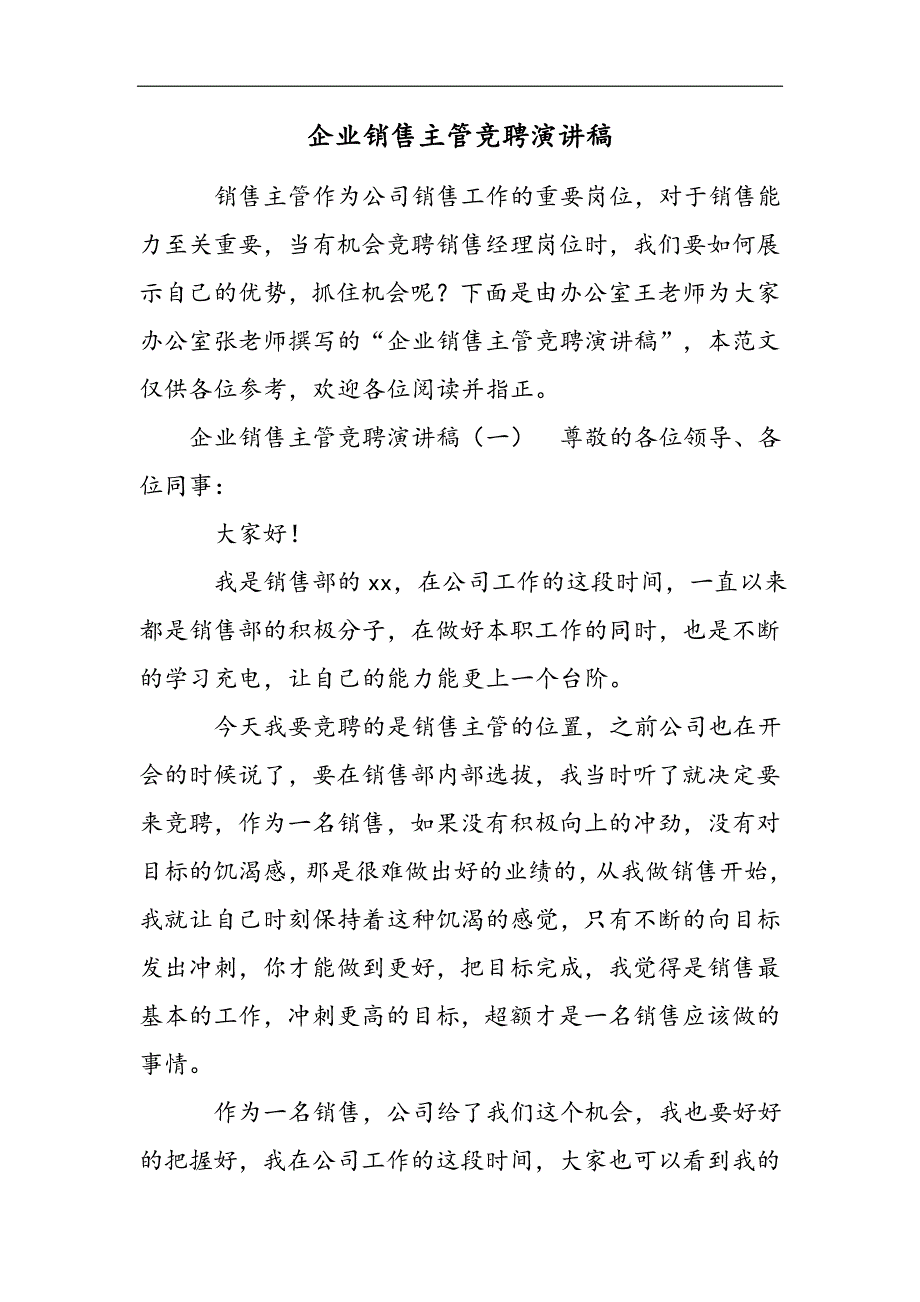 企业销售主管竞聘演讲稿
销售主管作为公司销售工作的重要岗位，对于销售能
力至关重要，当有机会竞聘销售经理岗位时，我们要如何展
示自己的优势，抓住机会呢？下面是由办公室王老师为大家
办公室张老师撰写的“企业销售主管竞聘演讲稿”，本范文
仅供各位参考，欢迎各位阅读并指正。
企业销售主管竞聘演讲稿（一）　尊敬的各位领导、各
位同事：
大家好！
我是销售部的xx，在公司工作的这段时间，一直以来
都是销售部的积极分子，在做好本职工作的同时，也是不断
的学习充电，让自己的能力能更上一个台阶。
今天我要竞聘的是销售主管的位置，之前公司也在开
会的时候说了，要在销售部内部选拔，我当时听了就决定要
来竞聘，作为一名销售，如果没有积极向上的冲劲，没有对
目标的饥渴感，那是很难做出好的业绩的，从我做销售开始，
我就让自己时刻保持着这种饥渴的感觉，只有不断的向目标
发出冲刺，你才能做到更好，把目标完成，我觉得是销售最
基本的工作，冲刺更高的目标，超额才是一名销售应该做的
事情。
作为一名销售，公司给了我们这个机会，我也要好好
的把握好，我在公司工作的这段时间，大家也可以看到我的